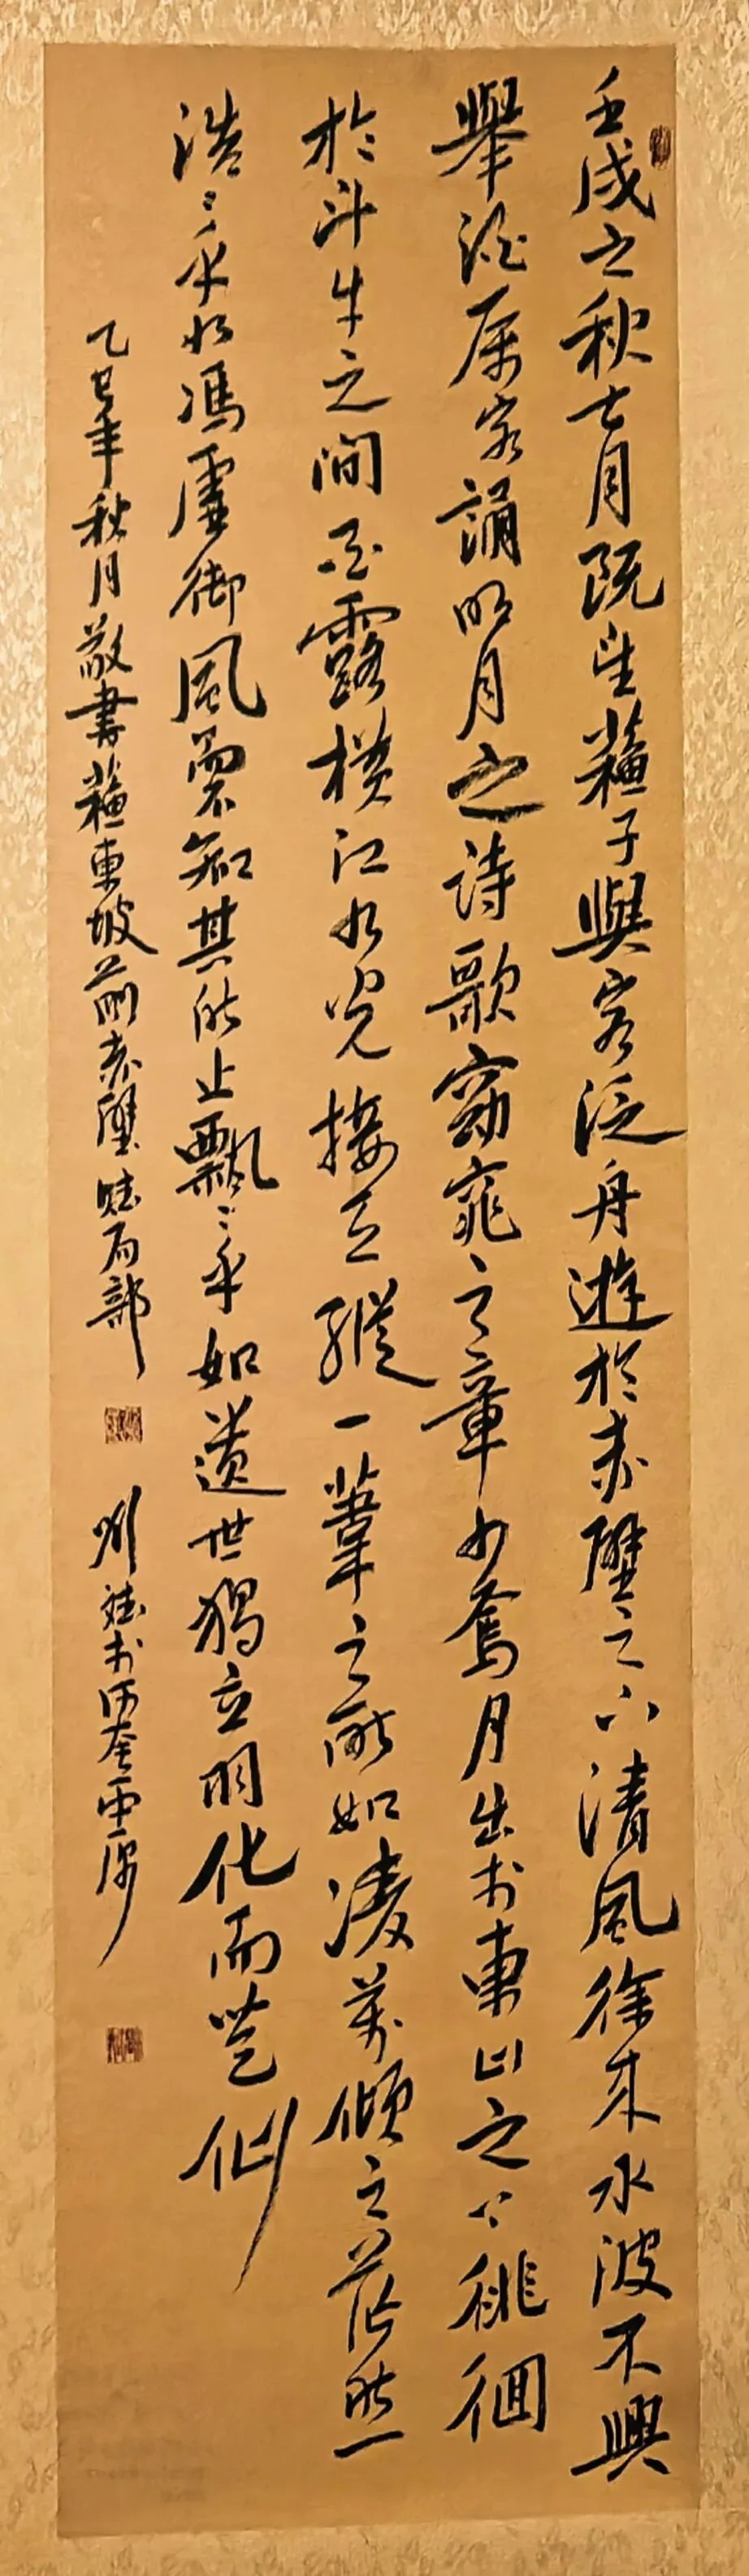 壬戌之秋七月既望蘇子與客泛舟遊於赤壁之下清風徐來水波不興
舉酒屬客誦明月之詩歌窈窕之章少焉月出於東山之上徘徊
於斗牛之間白露橫江水光接天縱一葦之所如凌萬傾之茫然
浩〻乎如馮虛御風而不知其所止飄〻乎如遺世獨立羽化而登仙
乙巳年秋月敬書蘇東坡前赤壁賦局部
劉 書於 中原